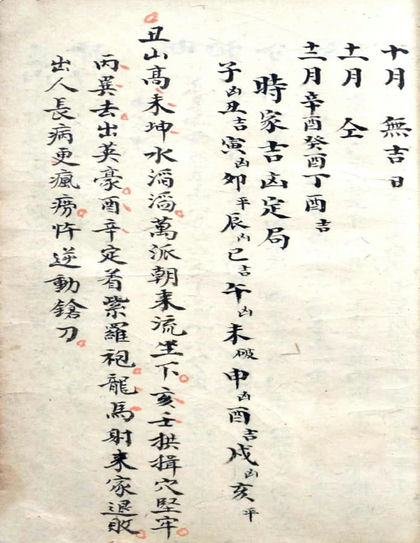 十月 無吉日
十一月 仝
十二月辛酉癸酉丁酉吉
時家吉凶定局
子凶丑吉寅凶卯平辰凶巳吉午凶未破申凶酉吉戌凶亥平
丑山高未坤水滔滔萬派朝来流坐下亥壬拱揖穴堅牢
丙巽去出英豪酉辛定着紫羅袍龍馬財来家退敗
出人長病更瘋癆忤逆動鎗刀